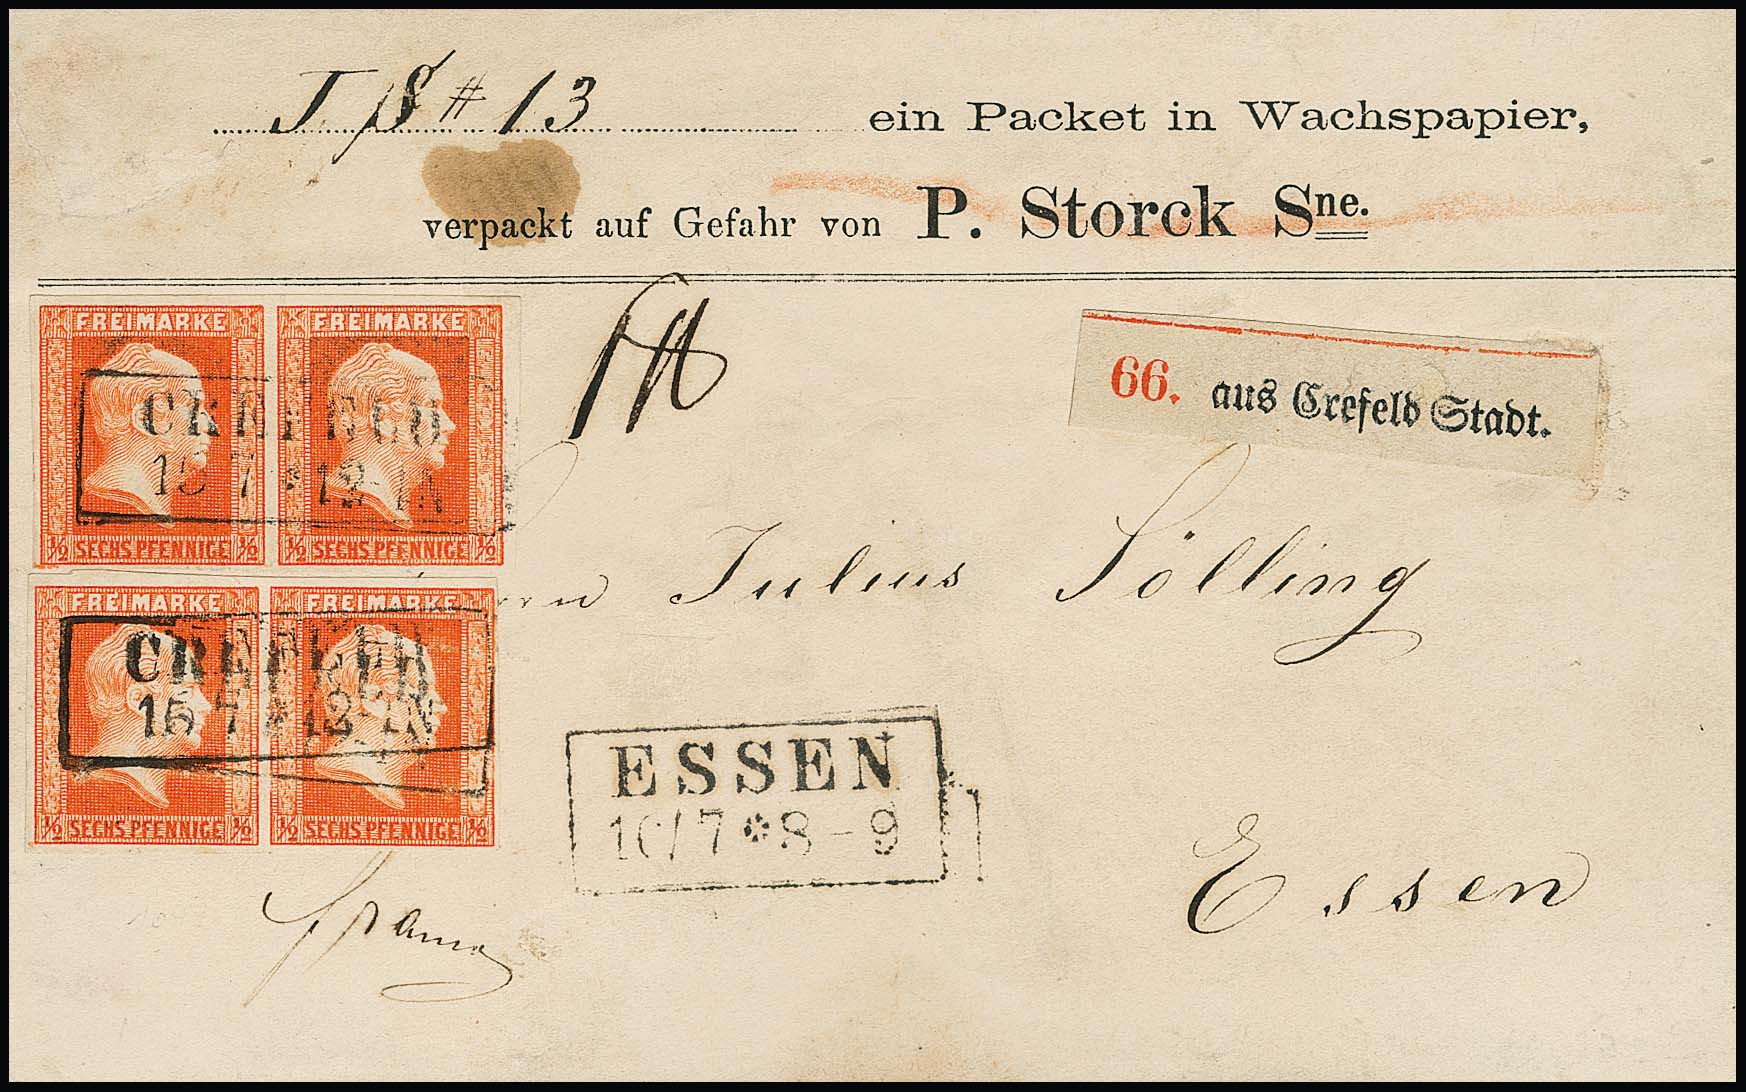 J # 13 ein Packet in Wachspapier,
verpackt auf Gefahr von P. Storck Sne.
FREIMARKE FREIMARKE
66. aus Crefeld Stadt.
CREFELD
15 7 * 12-1N
1/2 SECHS PFENNIGE 1/2 1/2 SECHS PFENNIGE 1/2
Julius Sölling
FREIMARKE FREIMARKE
CREFELD
15 7 * 12-1N
1/2 SECHS PFENNIGE 1/2 1/2 SECHS PFENNIGE 1/2
ESSEN
16/7 * 8-9
Essen